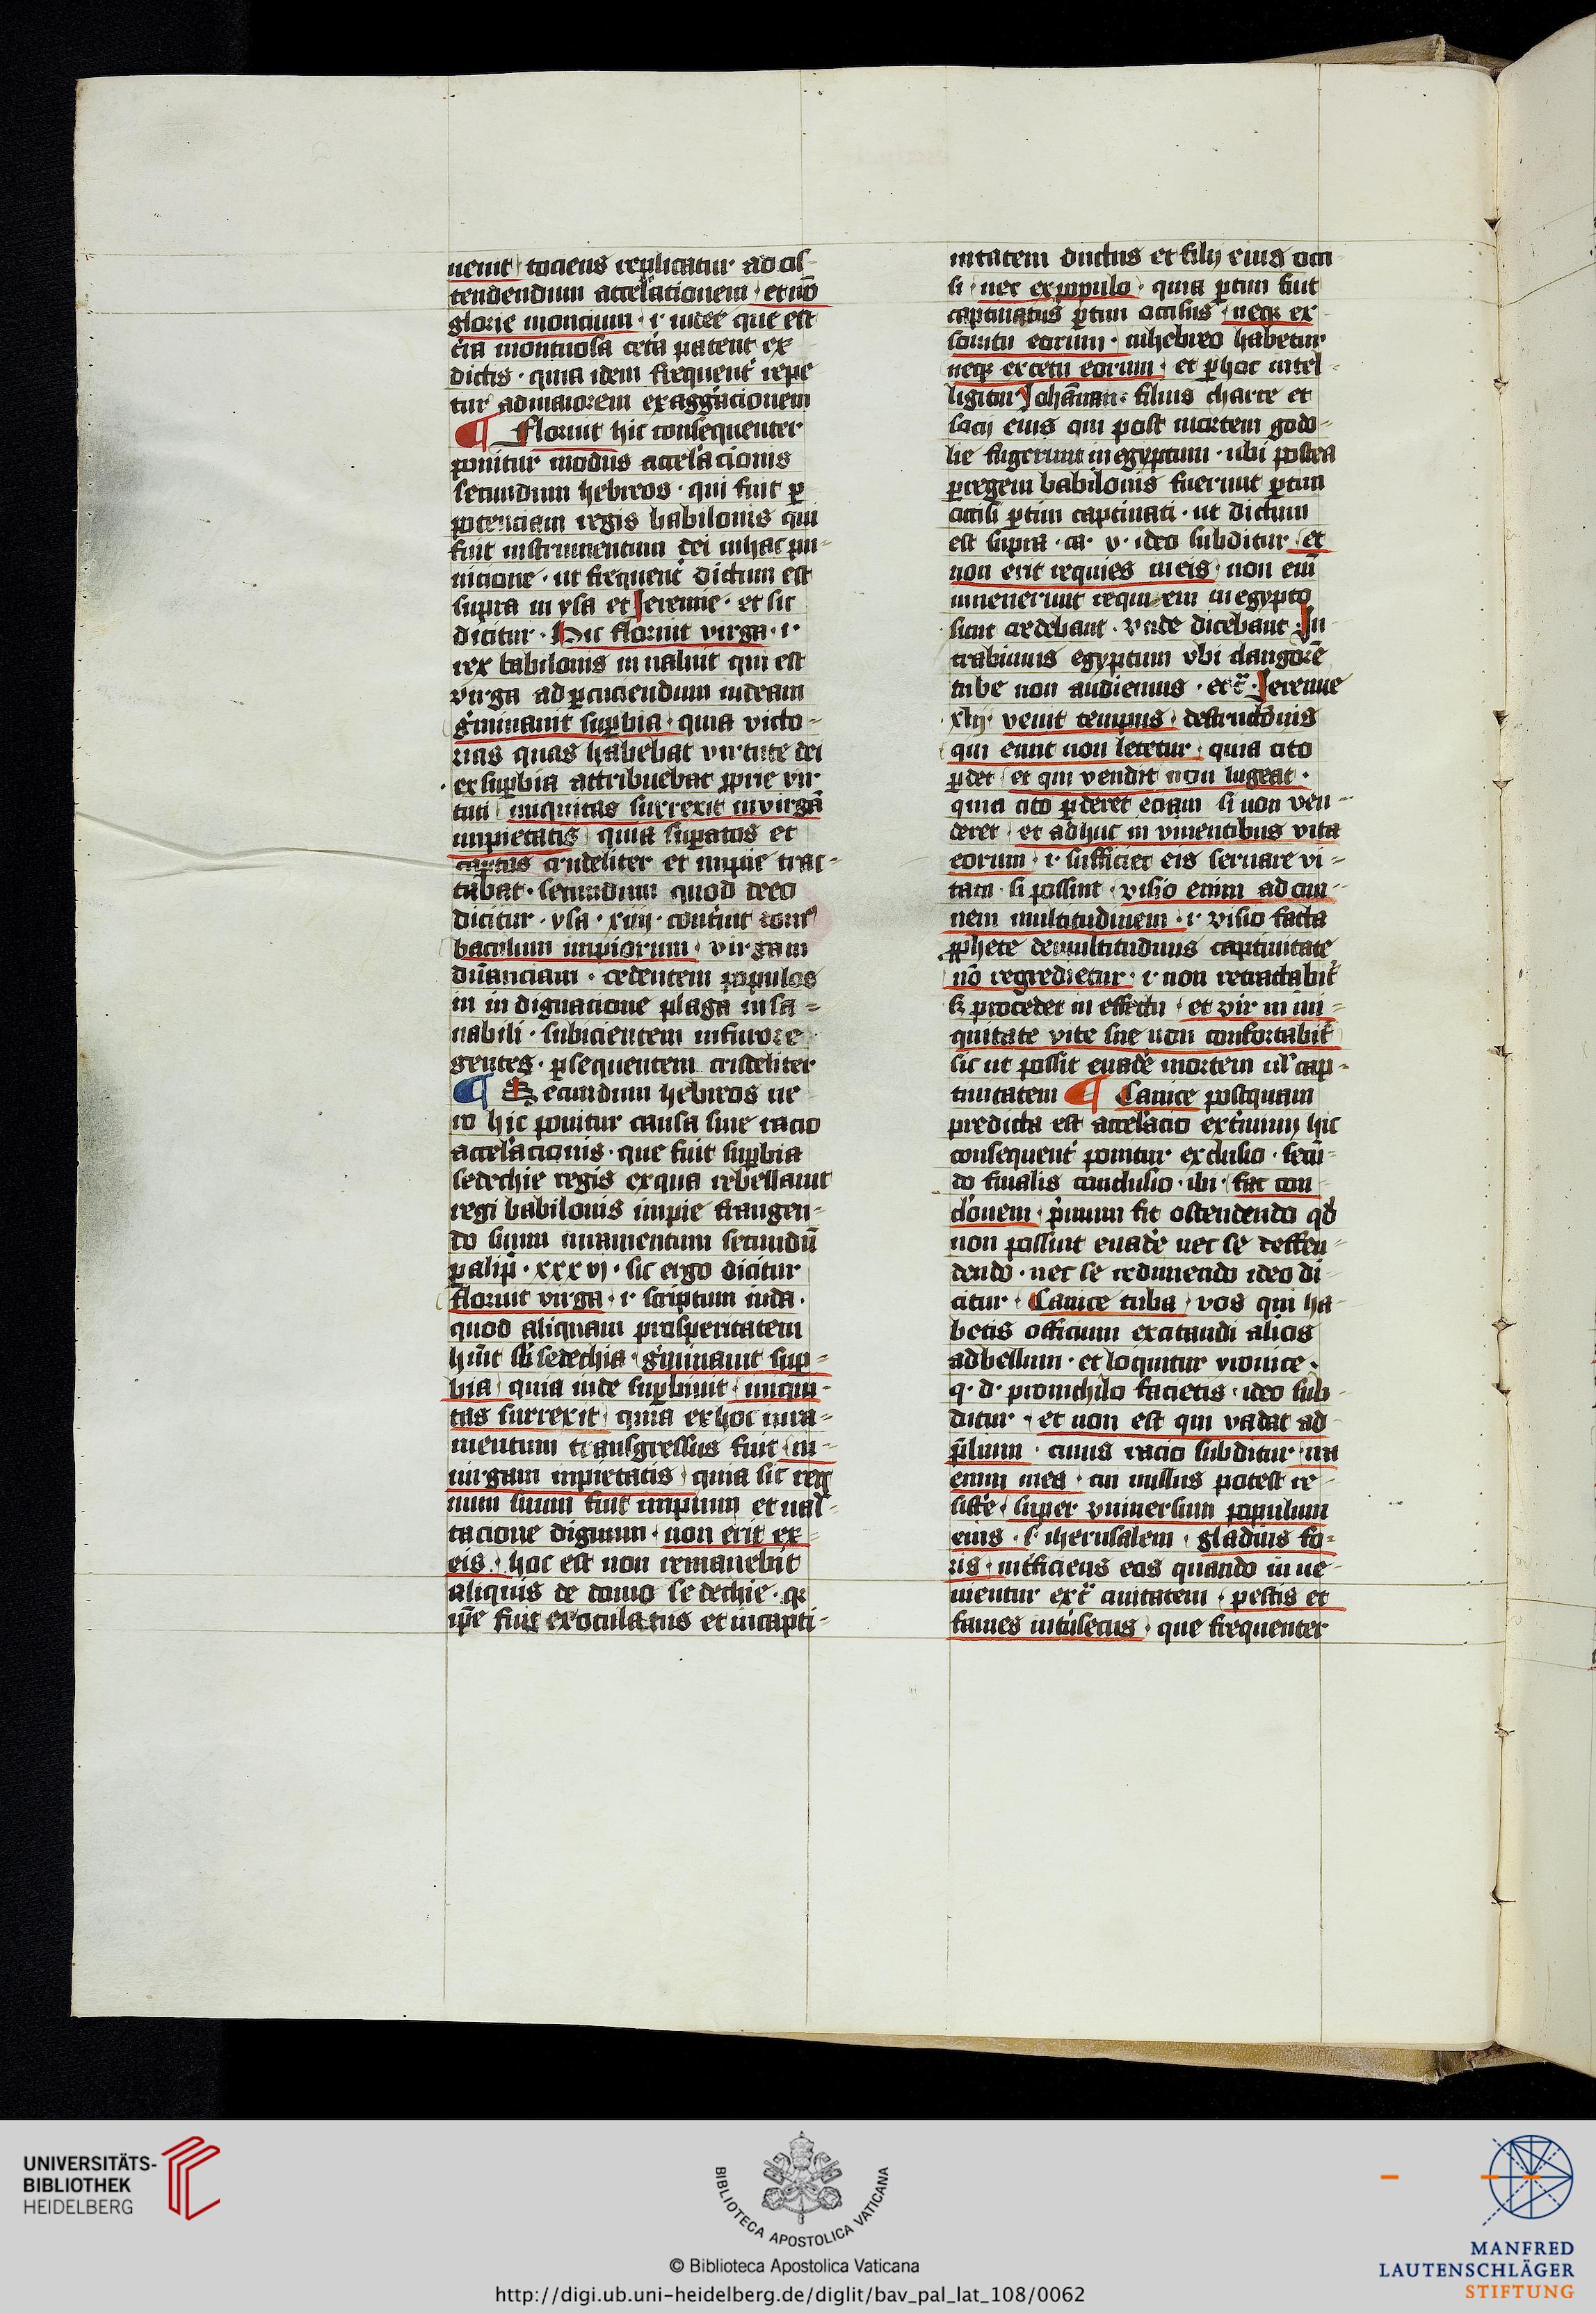 uenit tociens replicatur ad os-
tendendum accel'acionem et nō
glorie moncium · i· iudee que est
t'ra montuosa cet'a patent ex
dictis · quia idem frequent' repe
tur ad maiorem exagg'acionem
¶ Floruit hic consequenter
ponitur modus accel'acionis
secundum hebreos · qui fuit ꝑ
potenciam regis babilonis qui
fuit instrumentum dei in hac pu-
nicione · ut frequent' dictum est
supra in ysa et Jeremie · et sic
dicitur · Hic floruit virga · i·
rex babilonis inualuit qui est
virga ad ꝑcuciendum iudeam
g'minauit suꝑbia quia victo-
rias quas habebat virtute dei
ex suꝑbia attribuebat ꝓprie vir
tuti iniquitas surrexit in virgā
impietatis quia suꝑatos et
captos crudeliter et impie trac-
tabat · secundum quod deeo
dicitur · ysa · xiiij · cont'uit domꝰ
baculum impiorum virgam
dūanciam · cedentem populos
in indignacione plaga insa-
nabili · subicientem in furore
gentes · ꝑsequentem crudeliter
¶ Secundum hebreos ue
ro hic ponitur causa siue racio
accel'acionis · que fuit suꝑbia
sedechie regis ex qua rebellauit
regi babilonis impie frangen-
do suum iuramentum secundū
ꝑalip̄ · xxxvj · sic ergo dicitur
floruit virga · i· sceptrum iuda ·
quod aliquam prosperitatem
hūit sb' sedechia · g'minauit suꝑ-
bia quia inde suꝑbiuit iniqui-
tas surrexit quia ex hoc iura-
mentum transgressus fuit in-
uirgam impietatis quia sic reg
num suum fuit impium et uas-
tacione dignum non erit ex
eis · hoc est non remanebit
aliquis de domo sedechie · qꝛ
ip̄e fuit exoculatus et in capti-
uitatem ductus et filij eius occi
si nec ex populo quia ꝑtim fuit
captiuatus ꝑtim occisus neqꝫ ex
sonitu eorum · in hebreo habetur
neqꝫ ex cetu eorum · et ꝑ hoc intel-
ligitur Johānan · filius charee et
socij eius qui post mortem godo-
lie fugerunt in egyptum · ubi postea
ꝑ regem babilonis fuerunt ꝑtim
occisi ꝑtim captiuati · ut dictum
est supra · ca· v· ideo subditur et
non erit requies in eis non eni᷒m
inuenerunt requiem in egypto
sicut credebant · vnde dicebant · In
trabimus egyptum vbi clangorē
tube non audiemus · etc̄ · Jeremie
xlij· venit tempus destructōnis
qui emit non letetur quia cito
ꝑdet et qui vendit non lugeat ·
quia cito ꝑderet eciam si non ven-
deret et adhuc in viuentibus vita
eorum · i· sufficiet eis seruare vi-
tam · si possint visio enim ad om-
nem multitudinem · i· visio facta
ꝓphete de multitudinis captiuitate
nō regredietur · i· non retractabit'
sꝫ procedet in effectu et vir in ini-
quitate vite sue non confortabit'
sic ut possit euad'e mortem ul' cap-
tiuitatem ¶ Canite postquam
predicta est accel'acio excidij hic
consequent' ponitur exclusio · secū-
do finalis conclusio · ibi · fac con
cl'onem · p'mum fit ostendendo qd'
non possint euad'e nec se deffen-
dendo · nec se redimendo ideo di-
citur · Canite tuba vos qui ha-
betis officium excitandi alios
ad bellum · et loquitur yronice ·
q· d· pro nichilo facietis ideo sub-
ditur · et non est qui vadat ad
p̄lium · cuius racio subditur ira
enim mea cui nullus potest re-
sist'e super vniuersum populum
eius · s· iherusalem gladius fo-
ris int'ficiens eos quando inue-
nientur ext̄ ciuitatem pestis et
fames int'insecus que frequenter
UNIVERSITÄTS-
BIBLIOTHEK
HEIDELBERG
BIBLIOTECA APOSTOLICA VATICANA
© Biblioteca Apostolica Vaticana
http://digi.ub.uni-heidelberg.de/diglit/bav_pal_lat_108/0062
MANFRED
LAUTENSCHLÄGER
STIFTUNG